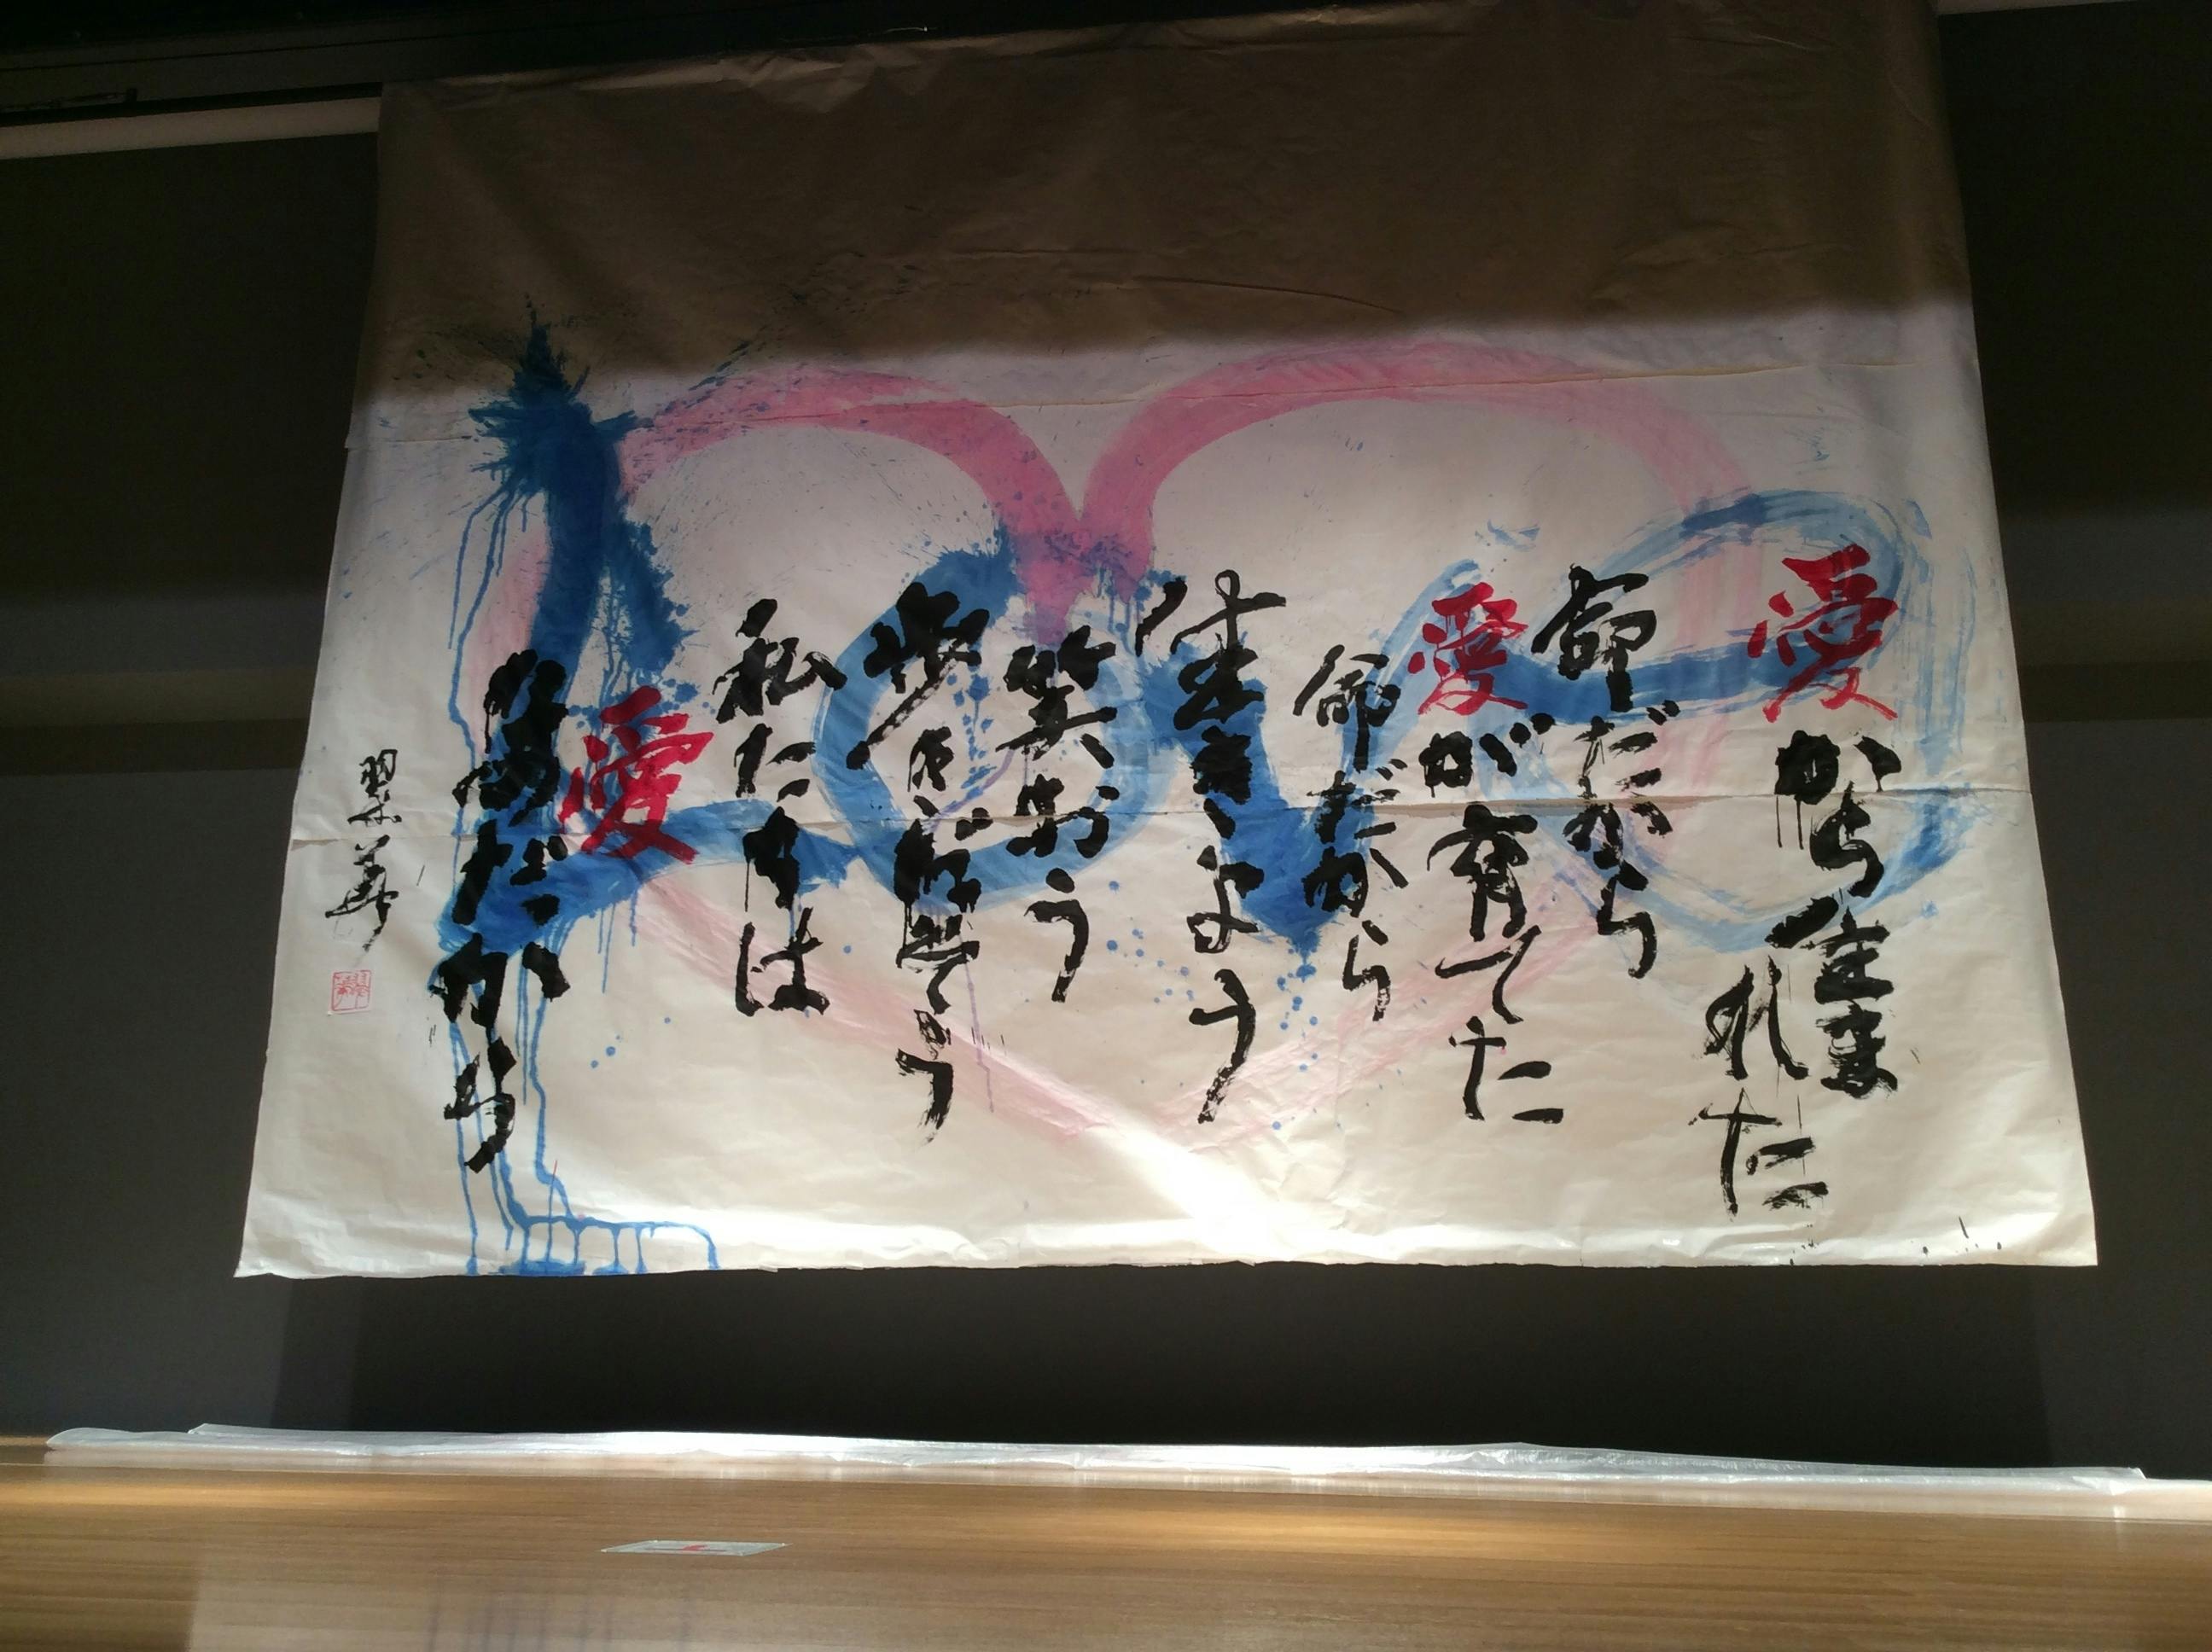 Love
愛から生まれた
命だから
愛が育てた
命だから
生きよう
笑おう
歩き続けよう
私たちは
愛
なのだから
翠華